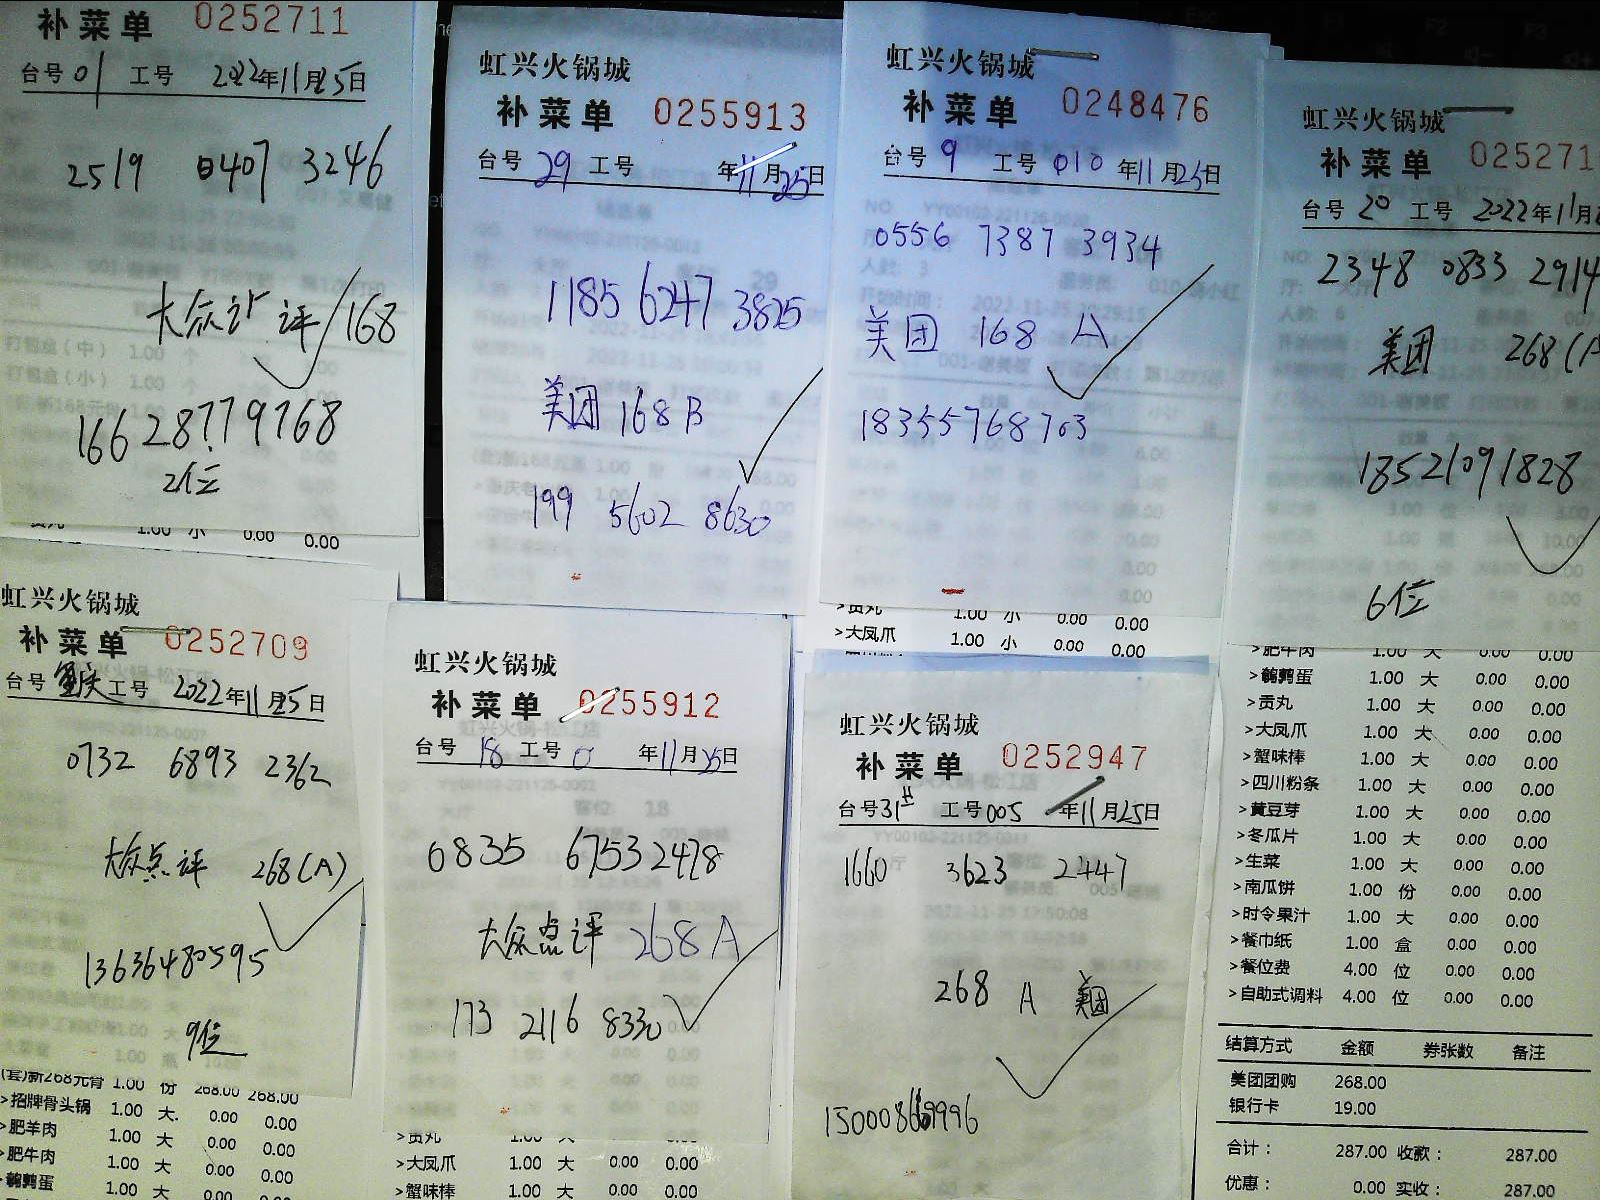 补菜单 0252711
台号 01 工号 2022年11月25日
2519 0407 3246
大众点评 168
166 28779768
2位
贡丸 1.00 小 0.00 0.00
虹兴火锅城
补菜单 0255913
台号 29 工号 年11月25日
1185 6247 3825
美团 168 B
199 5602 8630
虹兴火锅城
补菜单 0248476
台号 9 工号 010 年11月25日
0556 7387 3934
美团 168 A
18355768703
>贡丸 1.00 小 0.00 0.00
>大凤爪 1.00 小 0.00 0.00
虹兴火锅城
补菜单 025271
台号 20 工号 2022年11月
2348 0833 2914
美团 268(A
18521091828
6位
虹兴火锅城
补菜单 0252709
台号 重庆 工号 2022年11月25日
0732 6893 2362
大众点评 268(A)
13636480595
9位
(套)新268元骨 1.00 份 268.00 268.00
>招牌骨头锅 1.00 大 0.00 0.00
>肥羊肉 1.00 大 0.00 0.00
>肥牛肉 1.00 大 0.00 0.00
>鹌鹑蛋 1.00 大 0.00 0.00
虹兴火锅城
补菜单 0255912
台号 18 工号 0 年11月25日
6835 6753 2478
大众点评 268 A
173 2116 8330
>贡丸 1.00 大 0.00 0.00
>大凤爪 1.00 大 0.00 0.00
>蟹味棒 1.00 大 0.00 0.00
虹兴火锅城
补菜单 0252947
台号 31 工号 005 年11月25日
1660 3623 2447
268 A 美团
>肥牛肉 1.00 大 0.00 0.00
>鹌鹑蛋 1.00 大 0.00 0.00
>贡丸 1.00 大 0.00 0.00
>大凤爪 1.00 大 0.00 0.00
>蟹味棒 1.00 大 0.00 0.00
>四川粉条 1.00 大 0.00 0.00
>黄豆芽 1.00 大 0.00 0.00
>冬瓜片 1.00 大 0.00 0.00
>生菜 1.00 大 0.00 0.00
>南瓜饼 1.00 份 0.00 0.00
>时令果汁 1.00 大 0.00 0.00
>餐巾纸 1.00 盒 0.00 0.00
>餐位费 4.00 位 0.00 0.00
>自助式调料 4.00 位 0.00 0.00
结算方式 金额 券张数 备注
美团团购 268.00
银行卡 19.00
合计： 287.00 收款： 287.00
优惠： 0.00 实收： 287.00